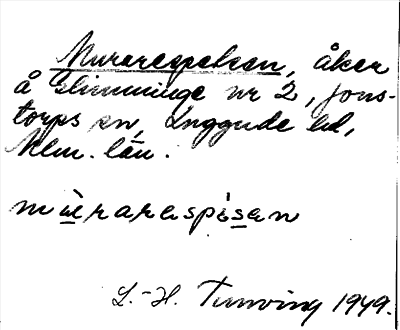 Murarespetsen, åker
å Glimminge nr 2, Jons-
torps sn, Luggude hd,
Mlm. län.
mùrarəspi̇sən
L.-H. Tunving 1949.